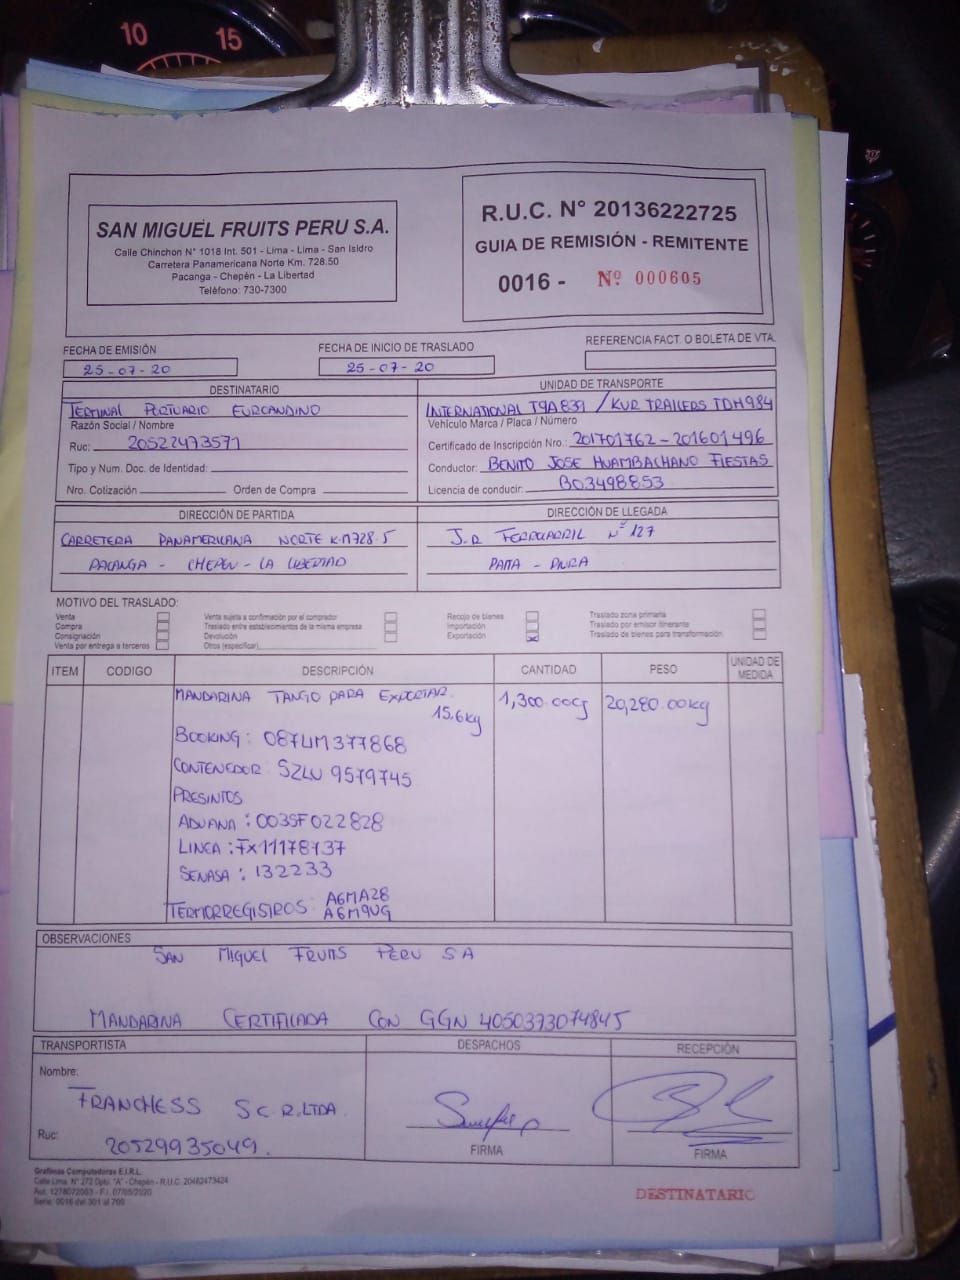 10 15
SAN MIGUEL FRUITS PERU S.A.
Calle Chinchon N° 1018 Int. 501 - Lima - Lima - San Isidro
Carretera Panamericana Norte Km. 728.50
Pacanga - Chepén - La Libertad
Teléfono: 730-7300
R.U.C. N° 20136222725
GUIA DE REMISIÓN - REMITENTE
0016 - Nº 000605
FECHA DE EMISIÓN
25-07-20
FECHA DE INICIO DE TRASLADO
25-07-20
REFERENCIA FACT. O BOLETA DE VTA.
DESTINATARIO
TERMINAL PORTUARIO EUROANDINO
Razón Social / Nombre
Ruc: 20522473571
Tipo y Num. Doc. de Identidad:
Nro. Cotización Orden de Compra
UNIDAD DE TRANSPORTE
INTERNATIONAL T9A831 / KUR TRAILERS TDH984
Vehículo Marca / Placa / Número
Certificado de Inscripción Nro.: 201701762-201601496
Conductor: BENITO JOSE HUAMBACHANO FIESTAS
Licencia de conducir: B03498853
DIRECCIÓN DE PARTIDA
CARRETERA PANAMERICANA NORTE K-M728.5
PACANGA - CHEPEN - LA LIBERTAD
DIRECCIÓN DE LLEGADA
J.R FERROCARRIL Nº 127
PAITA - PIURA
MOTIVO DEL TRASLADO:
Venta
Compra
Consignación
Venta por entrega a terceros
Venta sujeta a confirmación por el comprador
Traslado entre establecimientos de la misma empresa
Devolución
Otros (especificar)
Recojo de bienes
Importación
Exportación X
Traslado zona primaria
Traslado por emisor itinerante
Traslado de bienes para transformación
ITEM CODIGO DESCRIPCIÓN CANTIDAD PESO UNIDAD DE MEDIDA
MANDARINA TANGO PARA EXPORTAR 1,300.00cj 20,280.00kg
15.6kg
BOOKING: 087LIM377868
CONTENEDOR: SZLU 9579745
PRESINTOS
ADUANA: 003SF022828
LINEA: FX11178737
SENASA: 132233
TERMORREGISTROS: A6MA28
A6M9UG
OBSERVACIONES
SAN MIGUEL FRUITS PERU SA
MANDARINA CERTIFICADA CON GGN 4050373074845
TRANSPORTISTA
Nombre:
FRANCHESS S.C.R.LTDA.
Ruc: 20529935049.
DESPACHOS
FIRMA
RECEPCIÓN
FIRMA
Grafimas Computadoras E.I.R.L.
Calle Lima N° 272 Dpto. "A" - Chepén - R.U.C. 20482473424
Aut. 1278072063 - F.I. 07/05/2020
Serie: 0016 del 301 al 700
DESTINATARIO